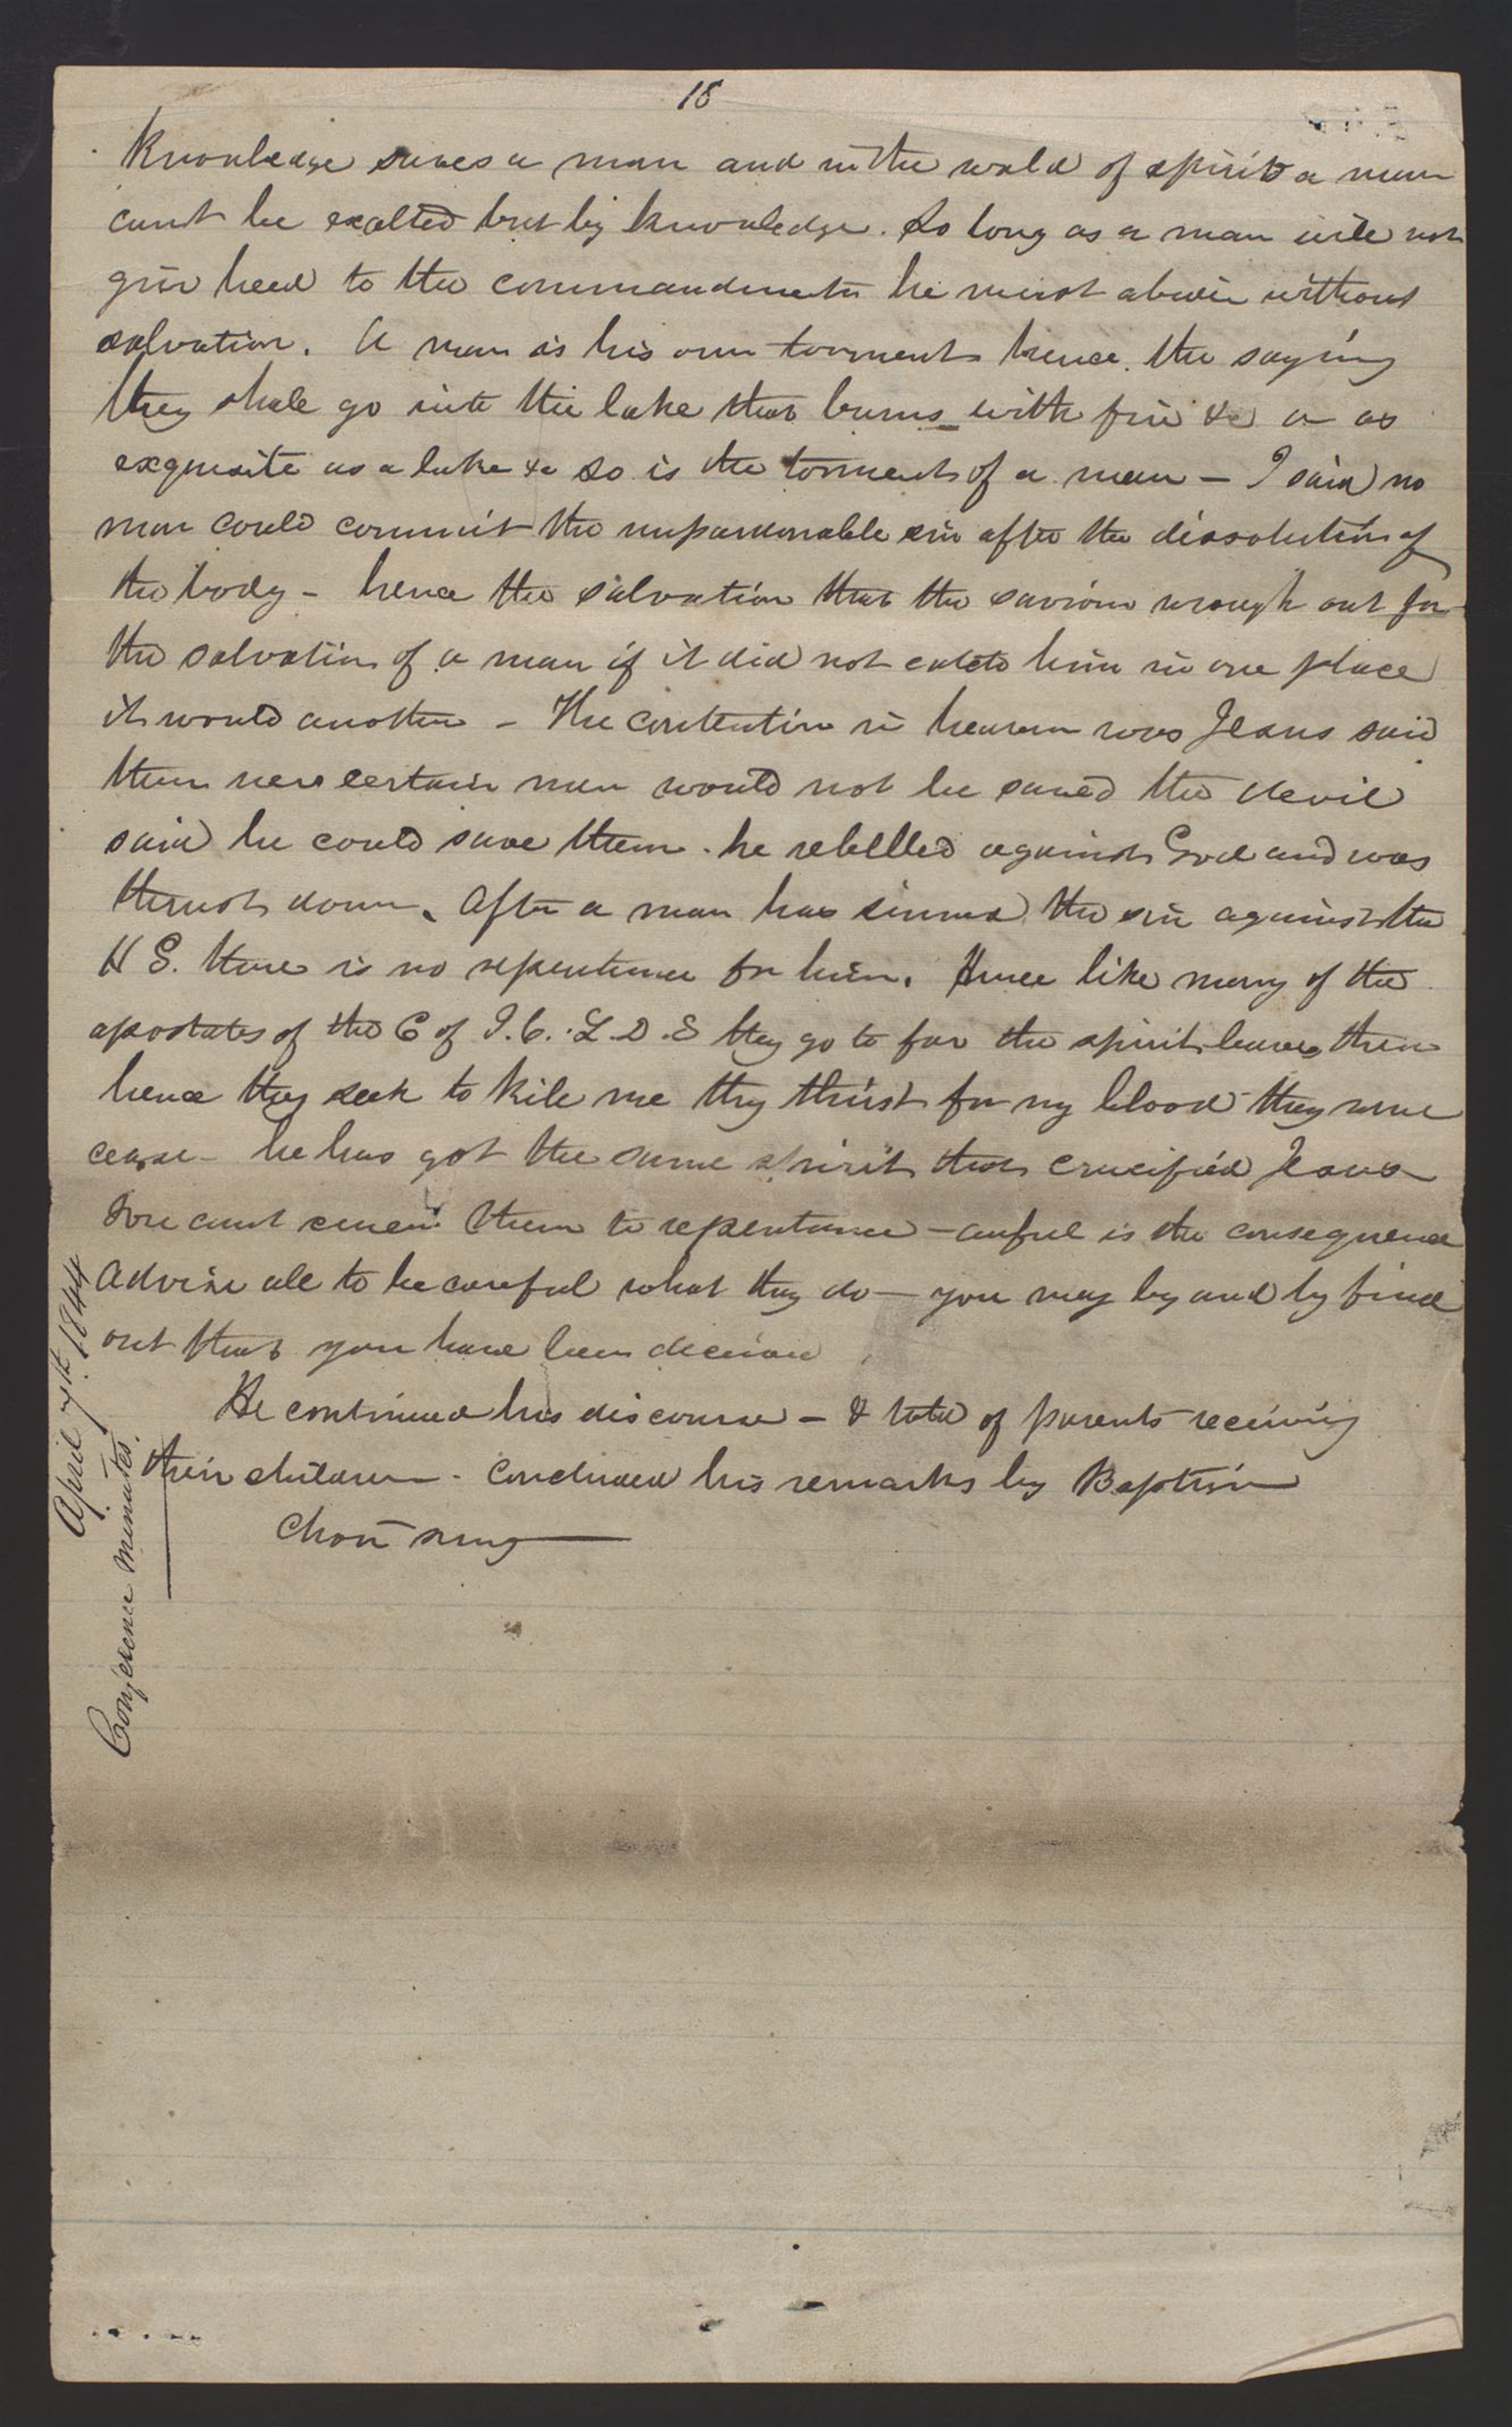 18
Knowledge saves a man and in the world of spirits a man
cant be exalted but by knowledge. So long as a man will not
give heed to the commandments he must abide without
salvation. A man is his own torment hence. the saying
they shall go into the lake that burns with fire &c as
exquisite as a lake &c so is the torment of a man — I said no
man could commit the unpardonable sin after the dissolution of
the body - hence the salvation that the saviour wrough out for
the salvation of a man if it did not catch him in one place
it would another - The contention in heaven was Jesus said
there were certain men would not be saved the devil
said he could save them. he rebelled against God and was
thrust down. After a man has sinned the sin against the
H G. there is no repentance for him. Hence like many of the
apostates of the C of J. C. L. D. S they go to far the spirit leaves them
hence they seek to kill me they thirst for my blood they never
cease - he has got the same spirit that crucified Jesus
You cant renew them to repentance — awful is the consequence
Advise all to be careful what they do — you may by and by find
out that you have been deceived
He continued his discourse - & told of parents receiving
their children - Concluded his remarks by Baptism
Choir sung
April 7th. 1844
Conference minutes.